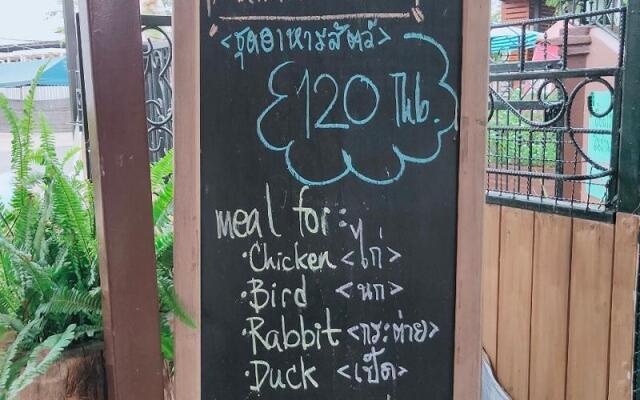 <ชุดอาหารสัตว์>
120 THB.
meal for:
• Chicken <ไก่>
• Bird <นก>
• Rabbit <กระต่าย>
• Duck <เป็ด>